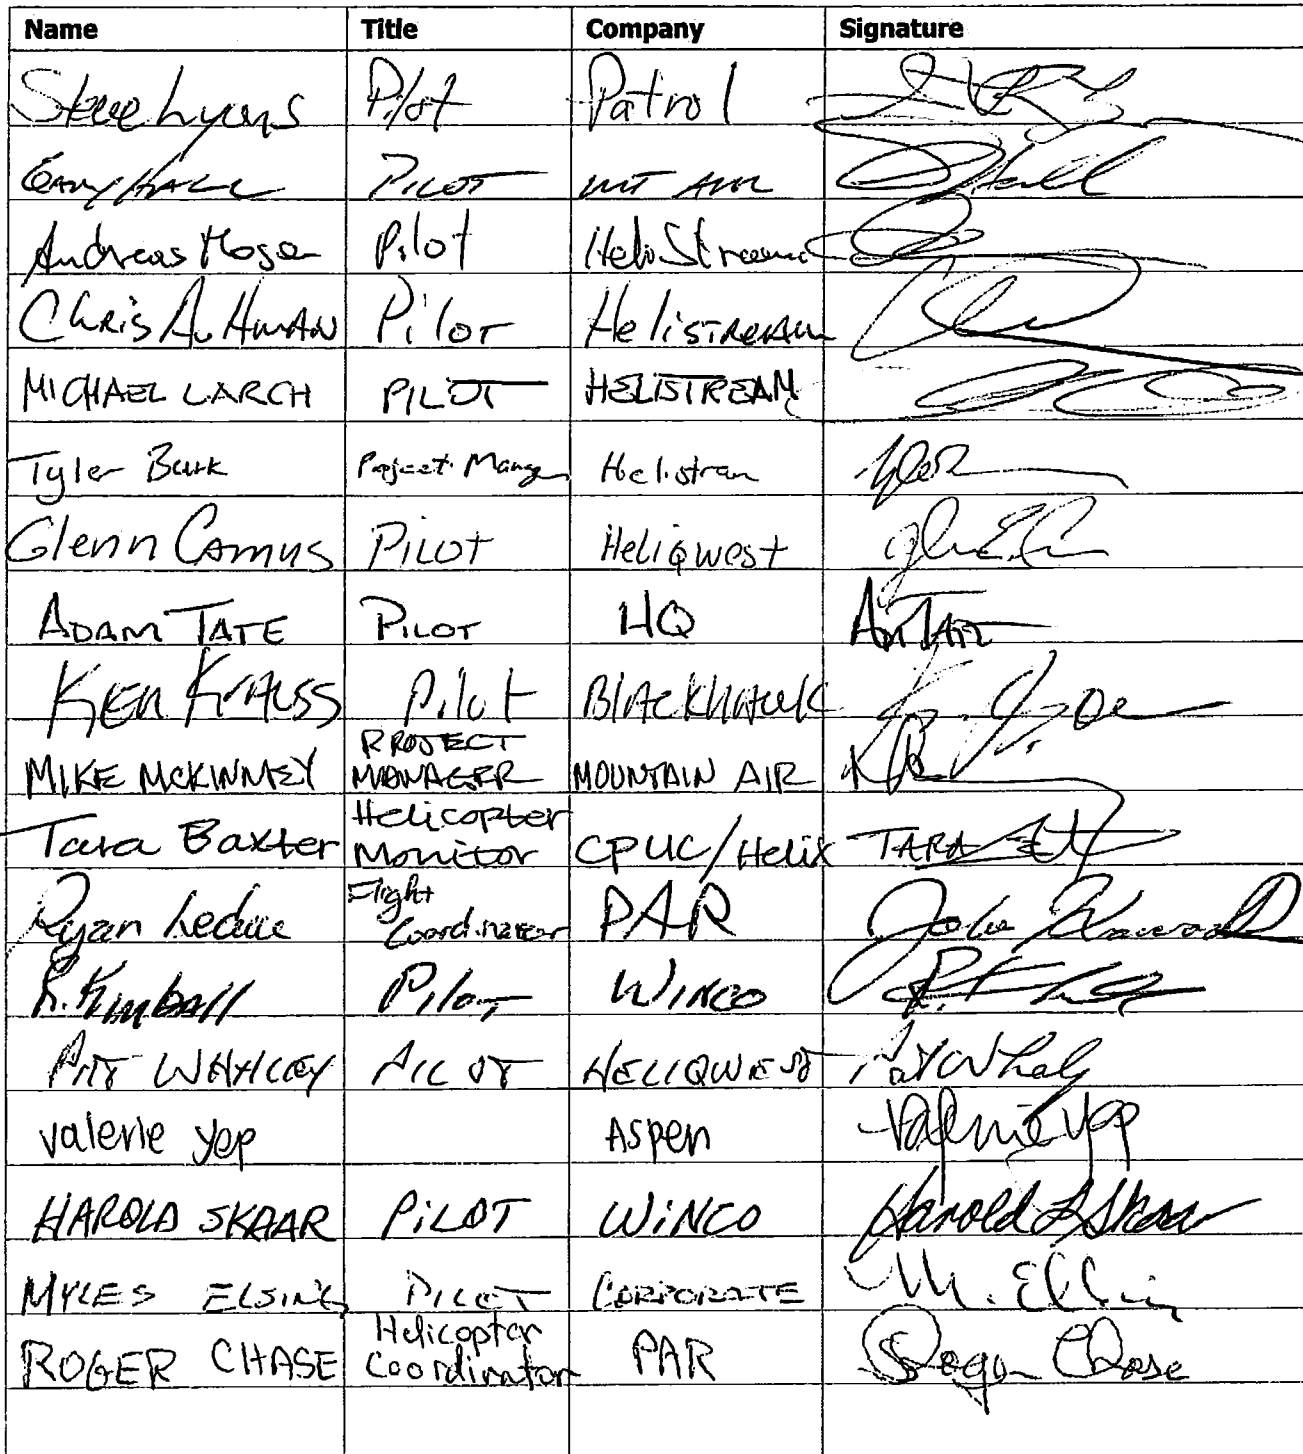 Name Title Company Signature
Steve Lyons Pilot Patrol
Gary Hall Pilot MT AIR Hall
Andreas Moser Pilot HeliStream
Chris A. Pilot Helistream
MICHAEL LARCH PILOT HELISTREAM
Tyler Burk Project Manger Helistram
Glenn Camus Pilot Heliqwest
ADAM TATE PILOT HQ
KEN KRAUSS Pilot BLACKHAWK
MIKE MCKINNEY PROJECT MANAGER MOUNTAIN AIR
Tara Baxter Helicopter Monitor CPUC/Helix TARA
Ryan Leduc Flight Coordinator PAR
R. Kimball Pilot WINCO
PAT WHALEY PILOT HELIQWEST Pat Whaly
valerie yep Aspen Valerie Yep
HAROLD SKAAR PILOT WINCO Harold L Skaar
MYLES ELSING PILOT CORPORATE M. Elsing
ROGER CHASE Helicopter Coordinator PAR Roger Chase